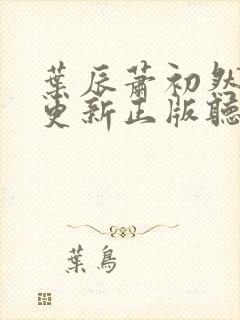 葉辰蕭初然
更新正版聽
葉鳥